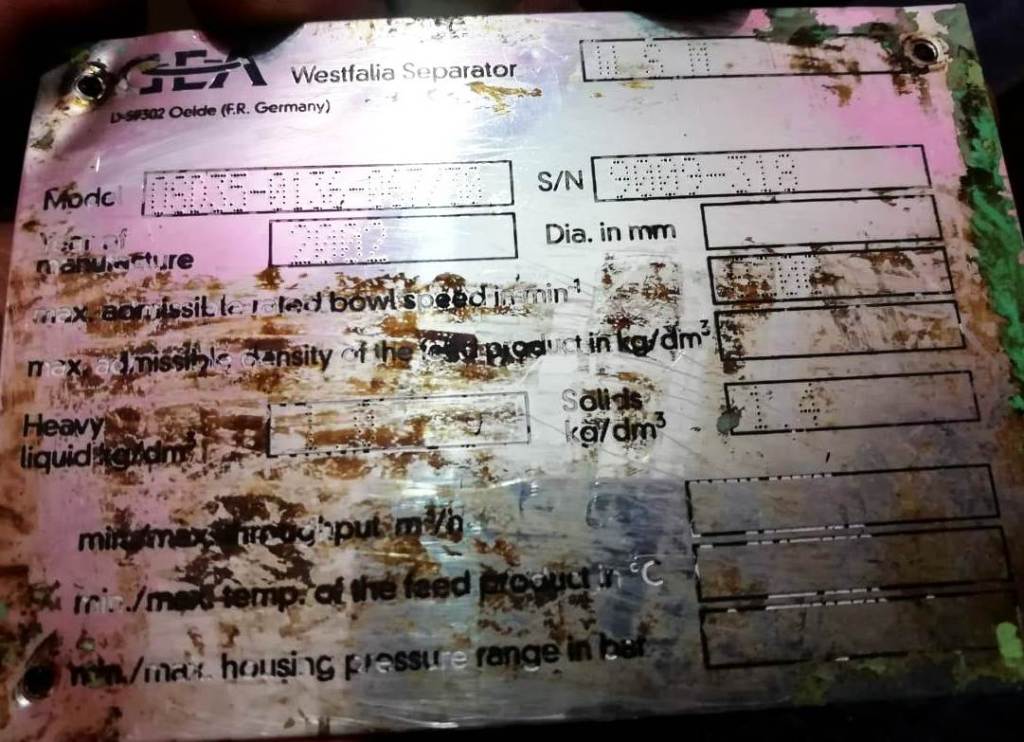 GEA Westfalia Separator
D-59302 Oelde (F.R. Germany)
Model
S/N 9009-318
Year of manufacture 2002
Dia. in mm
max. admissible rated bowl speed in min⁻¹
max. admissible density of the feed product in kg/dm³
Heavy liquid kg/dm³
Solids kg/dm³
min./max. throughput m³/h
min./max. temp. of the feed product in °C
min./max. housing pressure range in bar